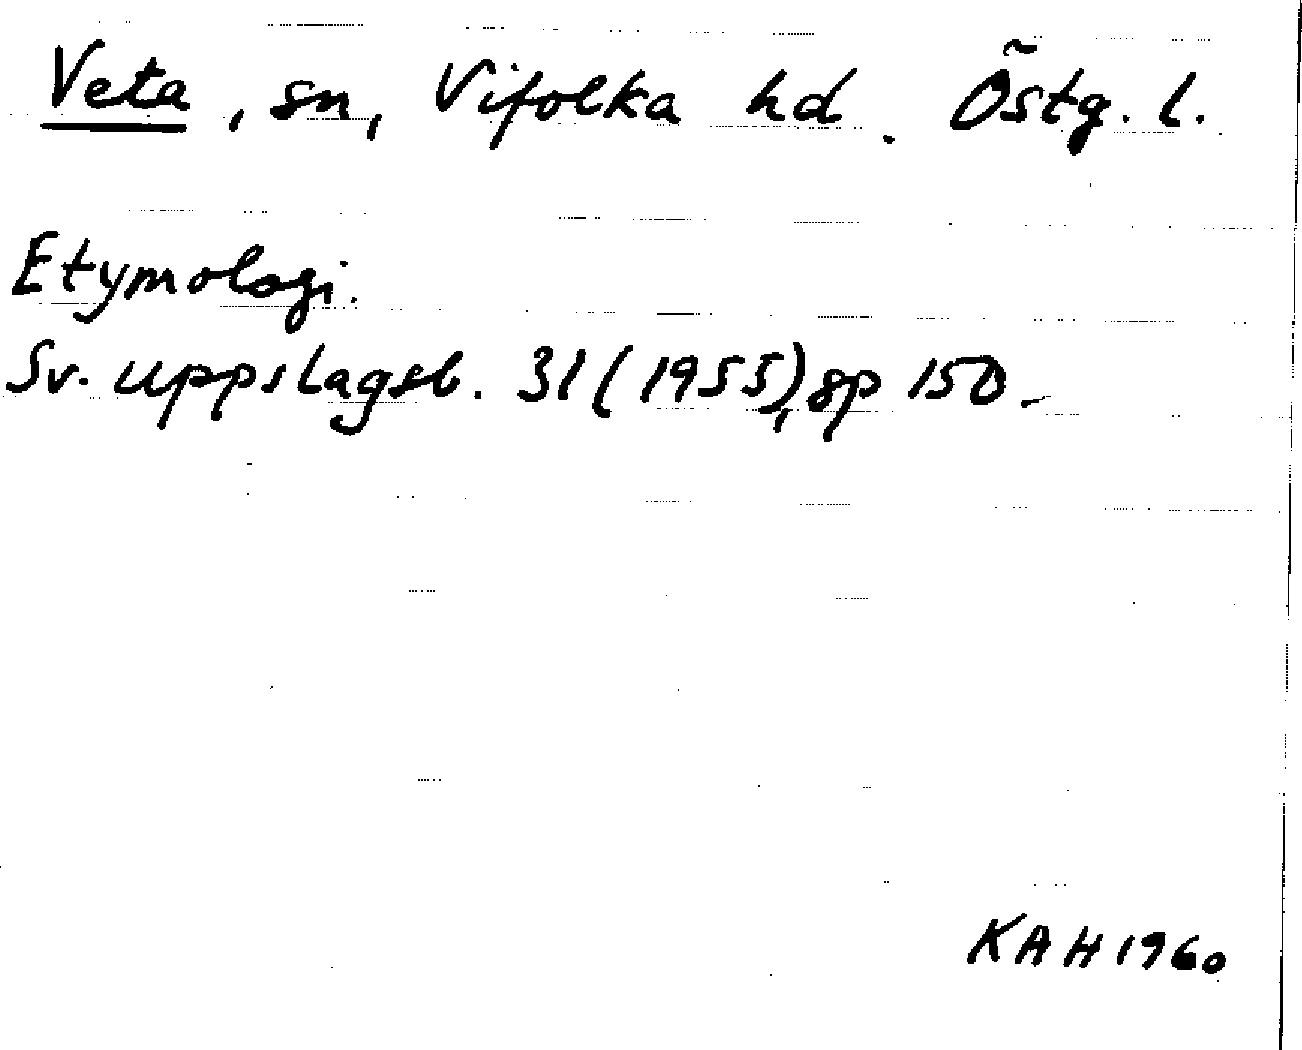 Veta, sn, Vifolka hd. Östg. l.
Etymologi.
Sv. uppslagsb. 31 (1955), sp 150.
KAH 1960